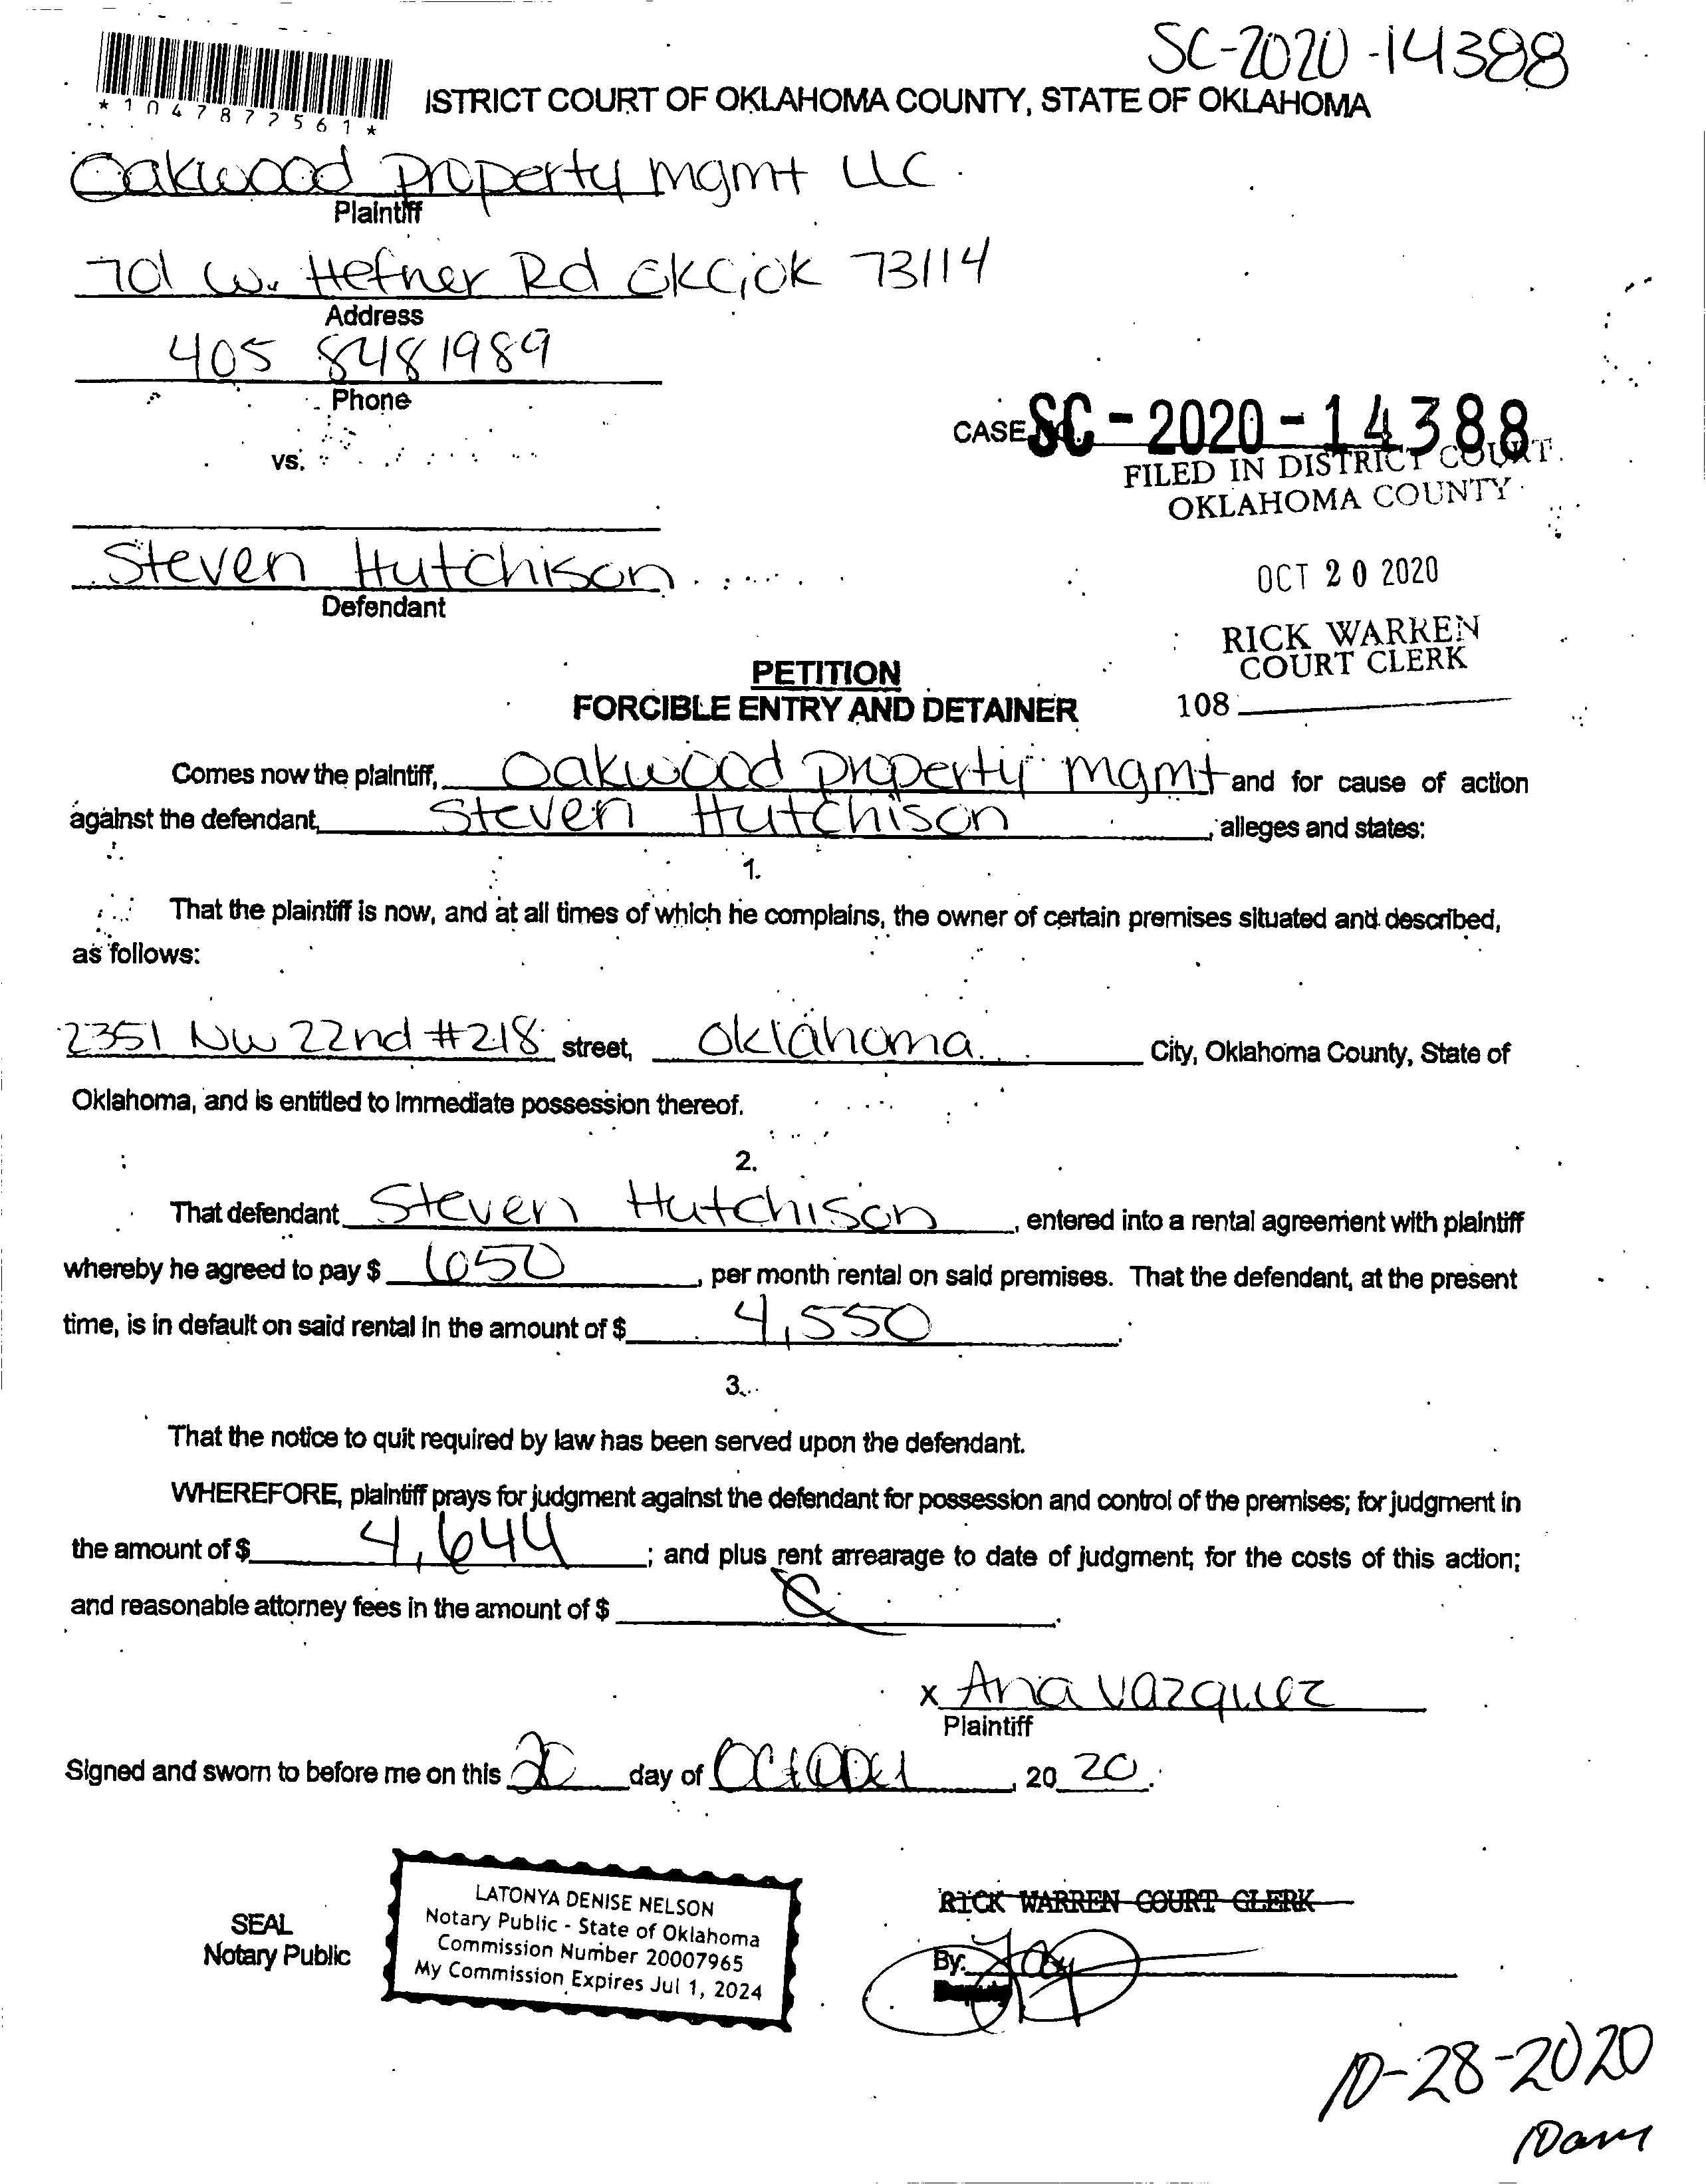 SC-2020-14388
*1047877561*
ISTRICT COURT OF OKLAHOMA COUNTY, STATE OF OKLAHOMA
Oakwood Property mgmt LLC
Plaintiff
701 W. Hefner Rd OKC, OK 73114
Address
405 848 1989
Phone
CASE NO. SC-2020-14388
vs.
FILED IN DISTRICT COURT
OKLAHOMA COUNTY
Steven Hutchison
Defendant
OCT 20 2020
RICK WARREN
COURT CLERK
108
PETITION
FORCIBLE ENTRY AND DETAINER
Comes now the plaintiff, Oakwood Property mgmt and for cause of action
against the defendant, Steven Hutchison, alleges and states:
1.
That the plaintiff is now, and at all times of which he complains, the owner of certain premises situated and described,
as follows:
2351 NW 22nd #218 street, Oklahoma City, Oklahoma County, State of
Oklahoma, and is entitled to immediate possession thereof.
2.
That defendant Steven Hutchison, entered into a rental agreement with plaintiff
whereby he agreed to pay $ 650, per month rental on said premises. That the defendant, at the present
time, is in default on said rental in the amount of $ 4,550.
3.
That the notice to quit required by law has been served upon the defendant.
WHEREFORE, plaintiff prays for judgment against the defendant for possession and control of the premises; for judgment in
the amount of $ 4,644; and plus rent arrearage to date of judgment; for the costs of this action;
and reasonable attorney fees in the amount of $
x Ana Vazquez
Plaintiff
Signed and sworn to before me on this 20 day of October, 20 20.
SEAL
Notary Public
LATONYA DENISE NELSON
Notary Public - State of Oklahoma
Commission Number 20007965
My Commission Expires Jul 1, 2024
RICK WARREN COURT CLERK
By:
Deputy
10-28-2020
10am